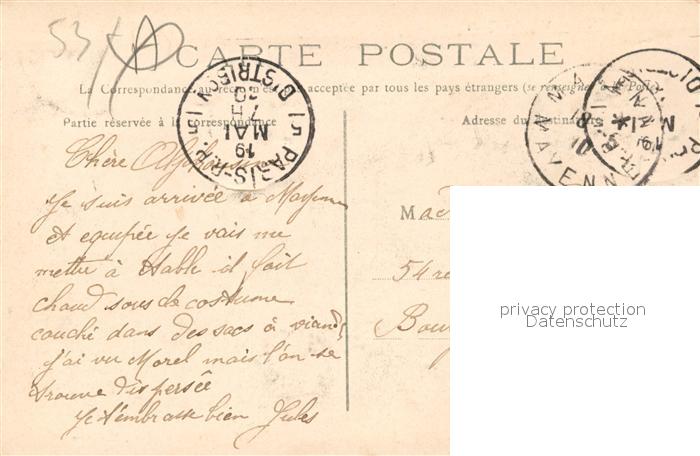 53
CARTE POSTALE
La Correspondance au recto n'est acceptée par tous les pays étrangers (se renseigner à la Poste)
Partie réservée à la correspondance
Adresse du destinataire
PARIS-R.P. 15 DISTRIBON
7H
19 MAI
MAYENNE
Chère
Je suis arrivée à Mayenne
et equipée Je vais me
mettre à table il fait
chaud sous de costume
couché dans des sacs à viande
j'ai vu Morel mais l'on se
trouve dispersée
Je t'embrasse bien Jules
Mad
54 r
Bou
privacy protection
Datenschutz